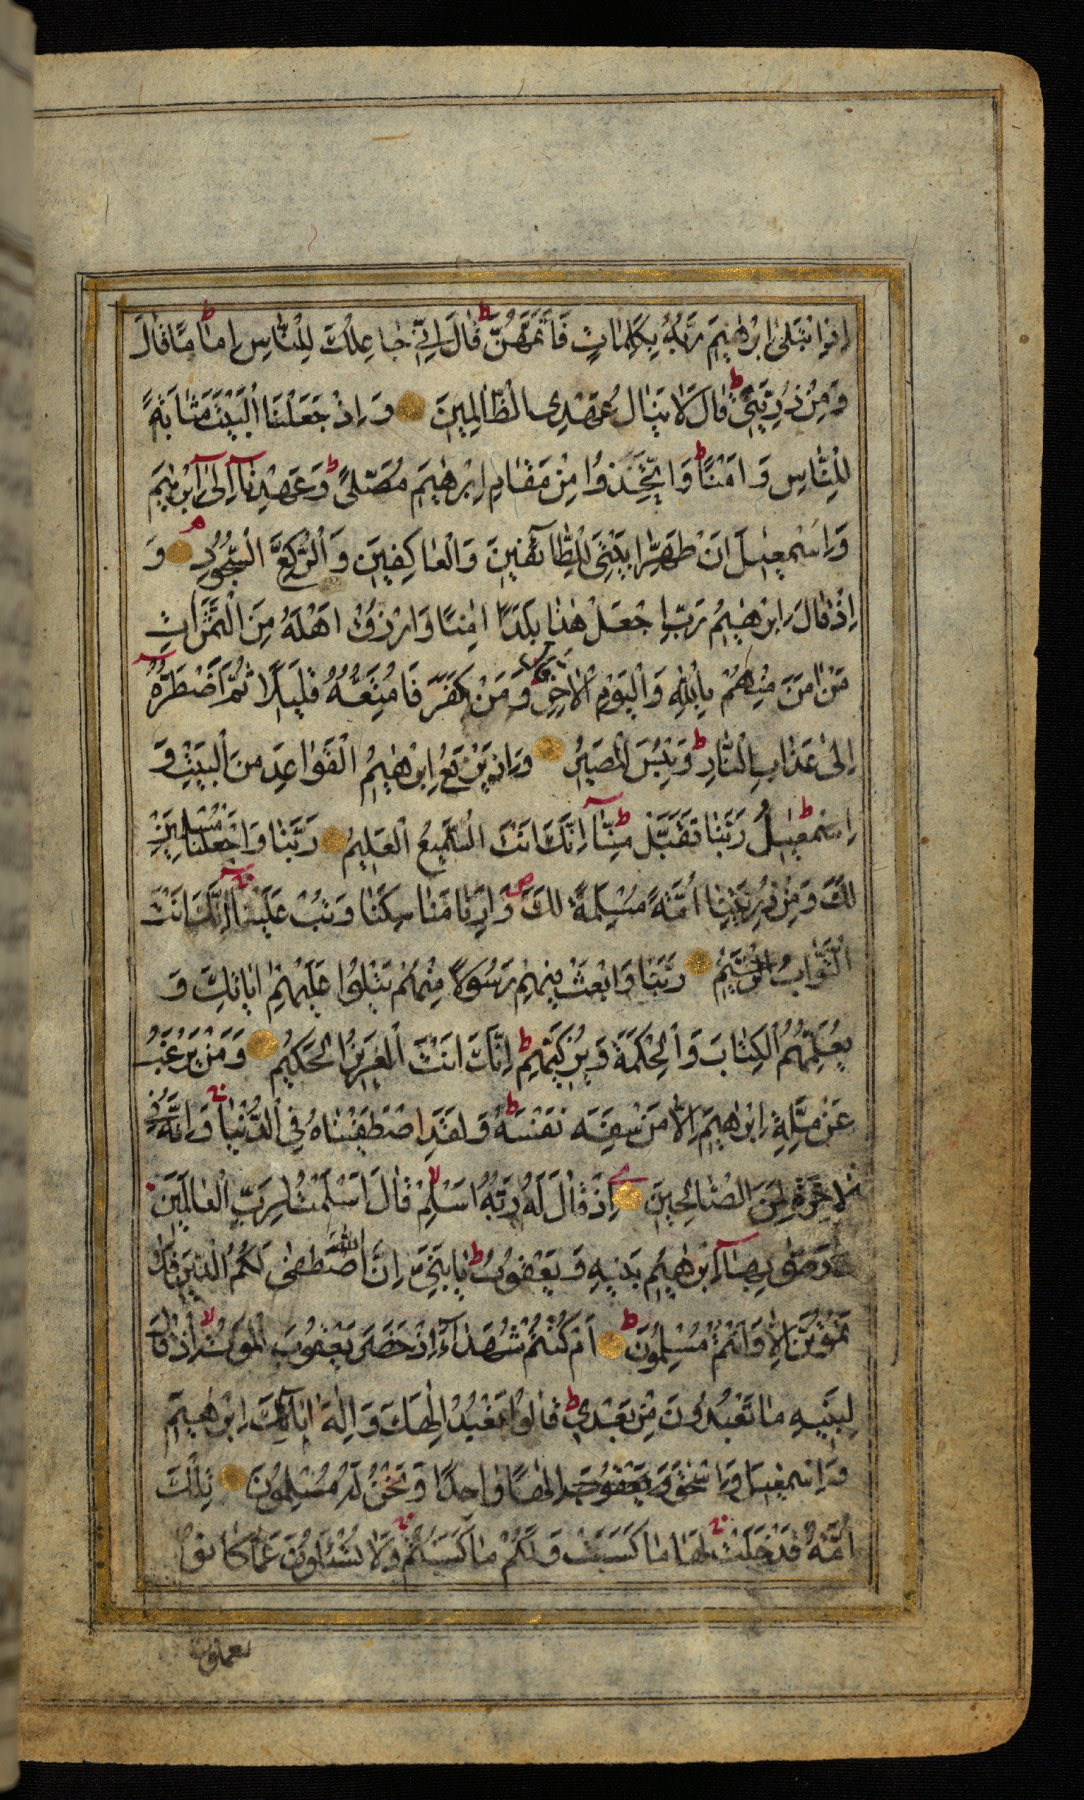 اِذِ ابْتَلىٰ اِبْرٰهٖيمَ رَبُّهُ بِكَلِمَاتٍ فَاَتَمَّهُنَّ ط قَالَ اِنّٖي جَاعِلُكَ لِلنَّاسِ اِمَامًا ط قَالَ
وَمِنْ ذُرِّيَّتٖي ط قَالَ لَا يَنَالُ عَهْدِي الظَّالِمٖينَ وَاِذْ جَعَلْنَا الْبَيْتَ مَثَابَةً
لِلنَّاسِ وَاَمْنًا ط وَاتَّخِذُوا مِنْ مَقَامِ اِبْرٰهٖيمَ مُصَلًّى ط وَعَهِدْنَآ اِلىٰٓ اِبْرٰهٖيمَ
وَاِسْمٰعٖيلَ اَنْ طَهِّرَا بَيْتِيَ لِلطَّآئِفٖينَ وَالْعَاكِفٖينَ وَالرُّكَّعِ السُّجُودِ وَ
اِذْ قَالَ اِبْرٰهٖيمُ رَبِّ اجْعَلْ هٰذَا بَلَدًا اٰمِنًا وَارْزُقْ اَهْلَهُ مِنَ الثَّمَرَاتِ
مَنْ اٰمَنَ مِنْهُمْ بِاللّٰهِ وَالْيَوْمِ الْاٰخِرِ ط قَالَ وَمَنْ كَفَرَ فَاُمَتِّعُهُ قَلٖيلًا ثُمَّ اَضْطَرُّهُٓ
اِلىٰ عَذَابِ النَّارِ ط وَبِئْسَ الْمَصٖيرُ وَاِذْ يَرْفَعُ اِبْرٰهٖيمُ الْقَوَاعِدَ مِنَ الْبَيْتِ وَ
اِسْمٰعٖيلُ ط رَبَّنَا تَقَبَّلْ مِنَّا ط اِنَّكَ اَنْتَ السَّمٖيعُ الْعَلٖيمُ رَبَّنَا وَاجْعَلْنَا مُسْلِمَيْنِ
لَكَ وَمِنْ ذُرِّيَّتِنَا اُمَّةً مُسْلِمَةً لَكَ ص وَاَرِنَا مَنَاسِكَنَا وَتُبْ عَلَيْنَا ج اِنَّكَ اَنْتَ
التَّوَّابُ الرَّحٖيمُ رَبَّنَا وَابْعَثْ فٖيهِمْ رَسُولًا مِنْهُمْ يَتْلُوا عَلَيْهِمْ اٰيَاتِكَ وَ
يُعَلِّمُهُمُ الْكِتَابَ وَالْحِكْمَةَ وَيُزَكّٖيهِمْ ط اِنَّكَ اَنْتَ الْعَزٖيزُ الْحَكٖيمُ وَمَنْ يَرْغَبُ
عَنْ مِلَّةِ اِبْرٰهٖيمَ اِلَّا مَنْ سَفِهَ نَفْسَهُ ط وَلَقَدِ اصْطَفَيْنَاهُ فِي الدُّنْيَا ج وَاِنَّهُ فِي
الْاٰخِرَةِ لَمِنَ الصَّالِحٖينَ اِذْ قَالَ لَهُ رَبُّهُٓ اَسْلِمْ لا قَالَ اَسْلَمْتُ لِرَبِّ الْعَالَمٖينَ
وَوَصّٰى بِهَآ اِبْرٰهٖيمُ بَنٖيهِ وَيَعْقُوبُ ط يَا بَنِيَّ اِنَّ اللّٰهَ اصْطَفٰى لَكُمُ الدّٖينَ فَلَا
تَمُوتُنَّ اِلَّا وَاَنْتُمْ مُسْلِمُونَ ط اَمْ كُنْتُمْ شُهَدَآءَ اِذْ حَضَرَ يَعْقُوبَ الْمَوْتُ لا اِذْ قَالَ
لِبَنٖيهِ مَا تَعْبُدُونَ مِنْ بَعْدٖي ط قَالُوا نَعْبُدُ اِلٰهَكَ وَاِلٰهَ اٰبَآئِكَ اِبْرٰهٖيمَ
وَاِسْمٰعٖيلَ وَاِسْحٰقَ وَيَعْقُوبَ اِلٰهًا وَاحِدًا وَنَحْنُ لَهُ مُسْلِمُونَ تِلْكَ
اُمَّةٌ قَدْ خَلَتْ ج لَهَا مَا كَسَبَتْ وَلَكُمْ مَا كَسَبْتُمْ ج وَلَا تُسْئَلُونَ عَمَّا كَانُوا
يعملون